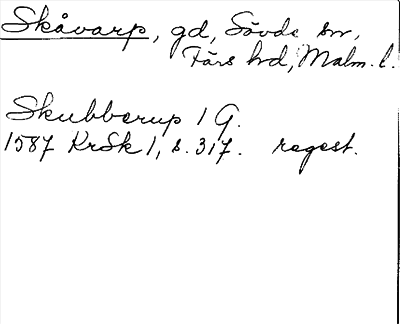 Skåvarp, gd, Sövde sn,
Färs hd, Malm. l.
Skubberup 1 G.
1587 KrSk 1, s. 317. regest.